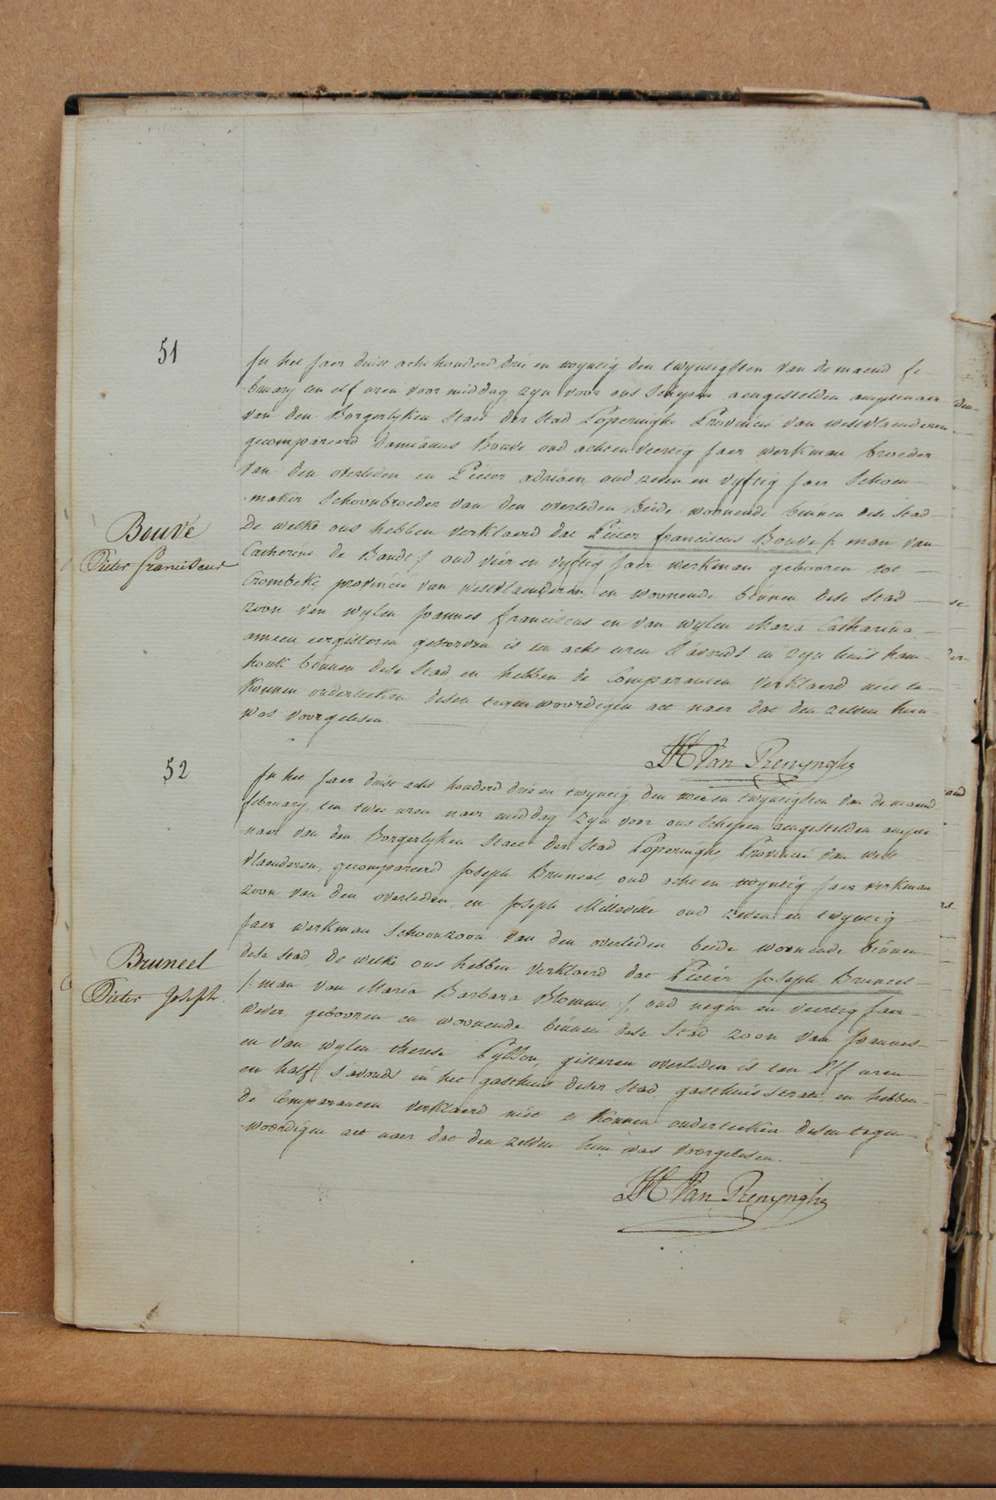 51
In het jaer duist acht honderd drie en twyntig den twyntigsten van de maend fe-
bruary ten elf uren voor middag zyn voor ons Schepen aengestelden amptenaer
van den Borgerlyken Staet der Stad Poperinghe Provincie van westvlaenderen
gecompareerd Damianus Bouve oud achtenveertig jaer werkman broeder
van den overleden en Pieter adriaen oud zeven en vyftig jaer Schoen-
maker Schoonbroeder van den overleden beide woonende binnen dese Stad
De welke ons hebben verklaerd dat Pieter franciscus Bouve /: man van
Bouvé
Pieter franciscus
Catherine de Bandt :/ oud vier en vyftig jaer werkman gebooren tot
Crombeke provincie van westvlaenderen en woonende binnen dese Stad
zoon van wylen Joannes franciscus en van wylen Maria Catharina
ameeu eergisteren is ten acht uren S'avonds in zyn huis
binnen dese Stad en hebben de Comparanten verklaerd niet te
konnen onderteeken desen tegenwoordigen act naer dat den zelven hun
was voorgelesen
Van Renynghe
52
In het jaer duist acht honderd drie en twyntig den twee en twyntigsten van de maend
february ten twee uren naer middag zyn voor ons Schepen aengestelden ampte
naer van den Borgerlyken Staet der Stad Poperinghe Provincie van west
vlaenderen, gecompareerd Joseph Bruneel, oud acht en twyntig jaer werkman
zoon van den overleden, en Joseph oud zeven en twyntig
jaer werkman Schoonzoon van den overleden beide woonende binnen
dese Stad De welke ons hebben verklaerd dat Pieter Joseph Bruneel
Bruneel
Pieter Joseph
/: man van Maria Barbara Blomme :/ oud negen en veertig jaer
wever gebooren en woonende binnen dese Stad zoon van Joannes
en van wylen therese gisteren overleden is ten elf uren
en half S'avonds in het gasthuis deser Stad gasthuisstraete, en hebben
de Comparanten verklaerd niet te konnen onderteeken desen tegen-
woordigen act naer dat den zelven hun was voorgelesen.
Van Renynghe